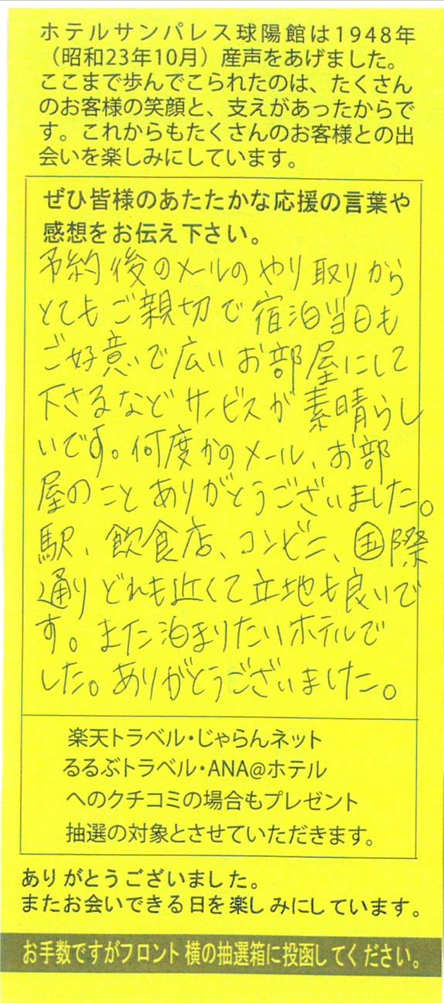 ホテルサンパレス球陽館は1948年
（昭和23年10月）産声をあげました。
ここまで歩んでこられたのは、たくさん
のお客様の笑顔と、支えがあったからで
す。これからもたくさんのお客様との出
会いを楽しみにしています。
ぜひ皆様のあたたかな応援の言葉や
感想をお伝え下さい。
予約後のメールのやり取りから
とてもご親切で宿泊当日も
ご好意で広いお部屋にして
下さるなどサービスが素晴らし
いです。何度かのメール、お部
屋のことありがとうございました。
駅、飲食店、コンビニ、国際
通りどれも近くて立地も良いで
す。また泊まりたいホテルで
した。ありがとうございました。
楽天トラベル・じゃらんネット
るるぶトラベル・ANA@ホテル
へのクチコミの場合もプレゼント
抽選の対象とさせていただきます。
ありがとうございました。
またお会いできる日を楽しみにしています。
お手数ですがフロント横の抽選箱に投函してください。